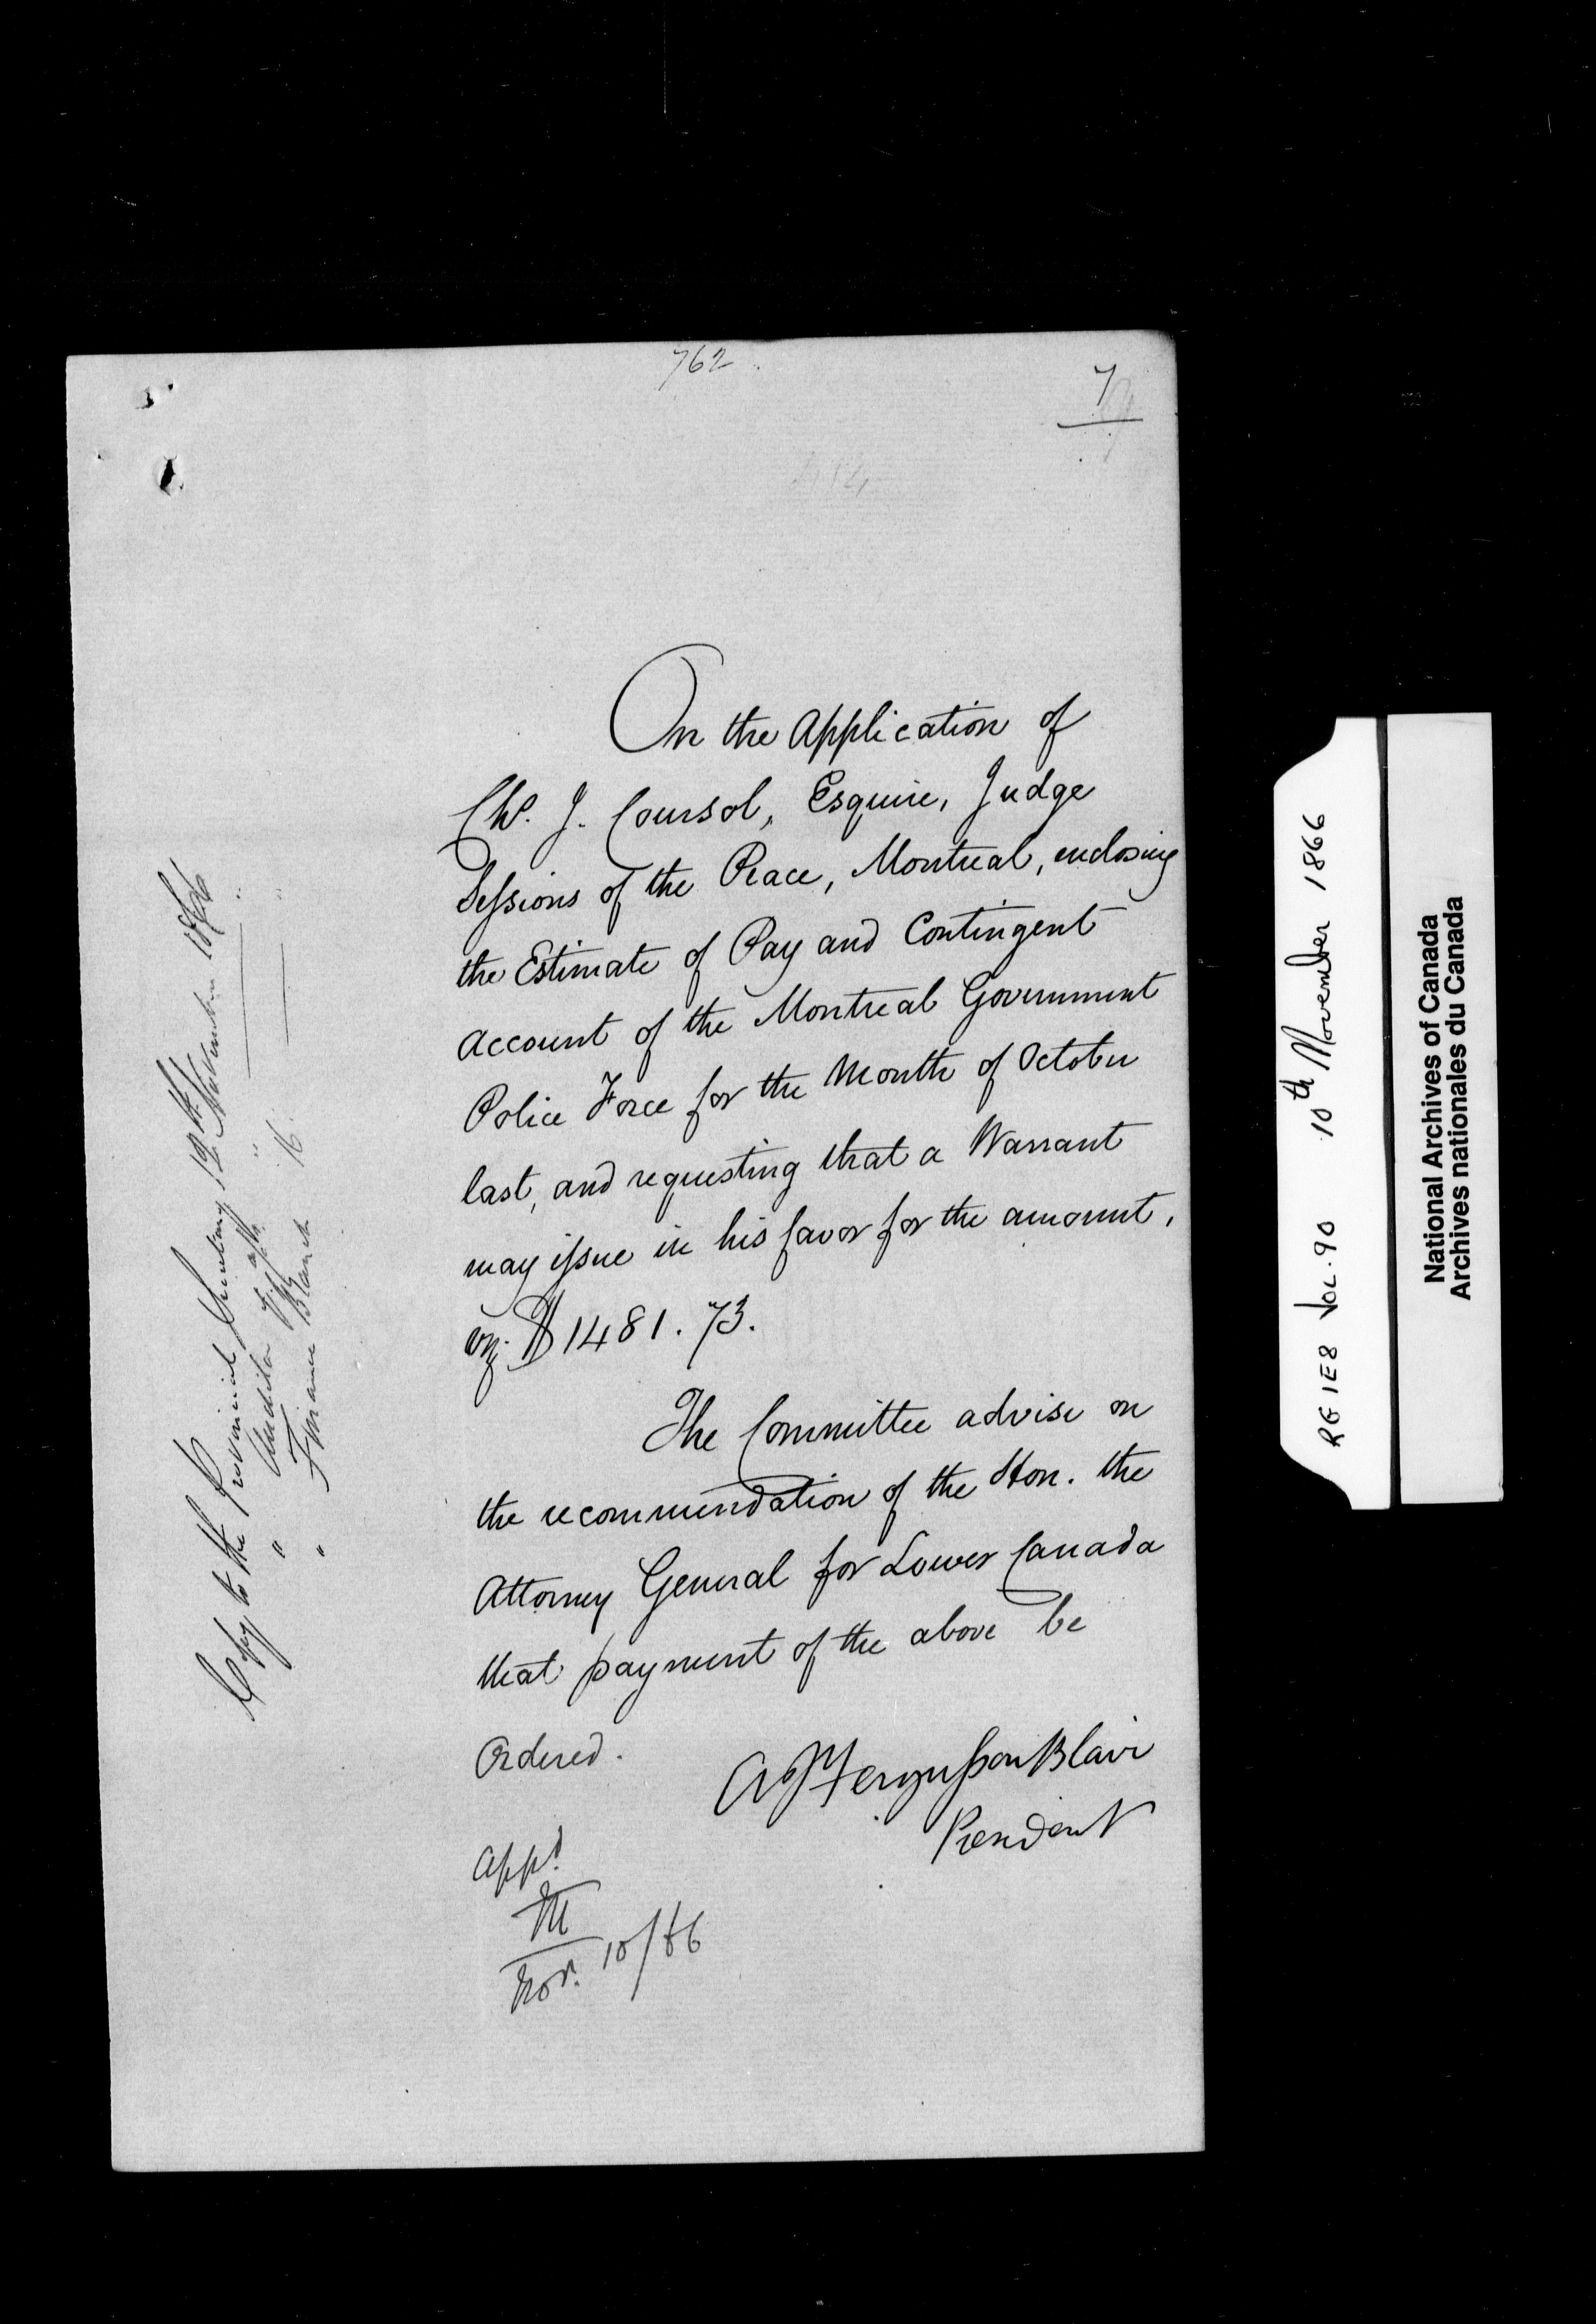 762.
7
On the Application of
Chs. J. Coursol, Esquire, Judge
Sessions of the Peace, Montreal, enclosing
the Estimate of Pay and Contingent
Account of the Montreal Government
Police Force for the Month of October
last, and requesting that a Warrant
may issue in his favor for the amount,
viz. $1481.73.
The Committee advise on
the recommendation of the Hon. the
Attorney General for Lower Canada
that payment of the above be
Ordered.
A J Fergusson Blair
President
Appd
M
Nov. 10/66
Copy to the Provincial Secretary 12th November 1866
" Auditor " "
" Finance Branch 16. "
RG 1E8 VOL. 90 10th November 1866
National Archives of Canada
Archives nationales du Canada